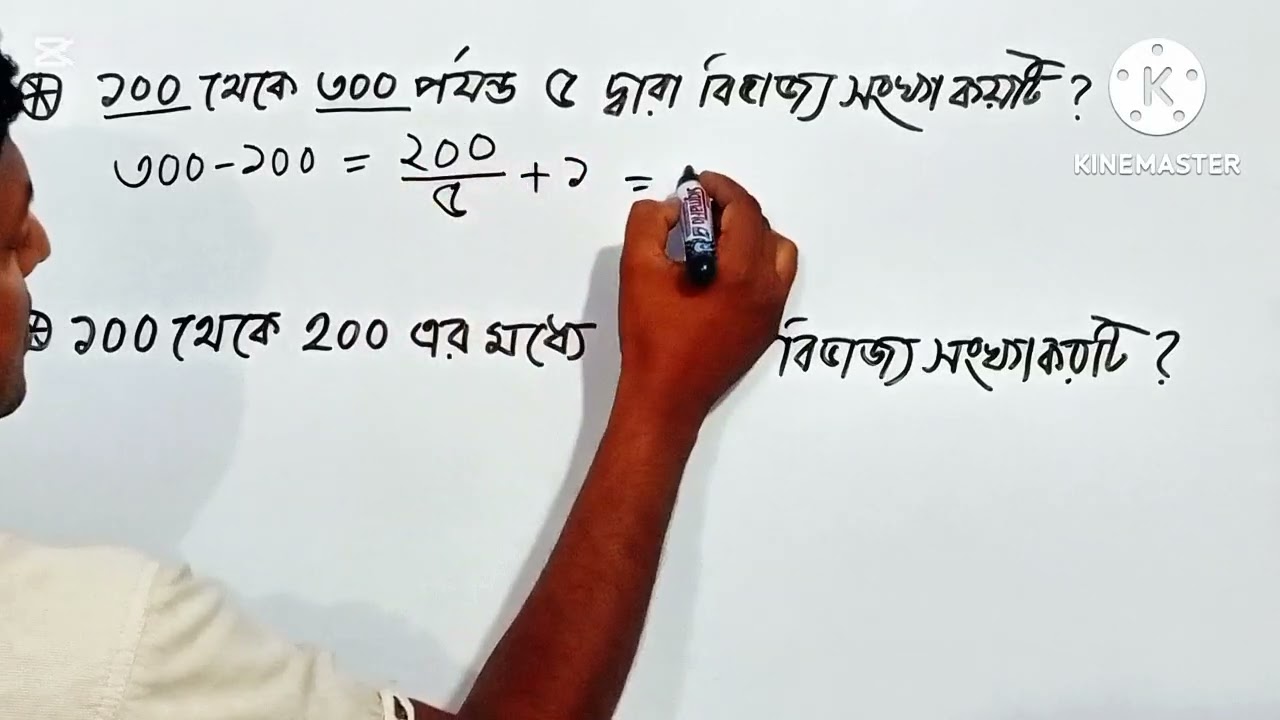 ১০০ থেকে ৩০০ পর্যন্ত ৫ দ্বারা বিভাজ্য সংখ্যা কয়টি ?
KINEMASTER
৩০০ - ১০০ = ২০০/৫ + ১ =
১০০ থেকে ২০০ এর মধ্যে বিভাজ্য সংখ্যা কয়টি ?